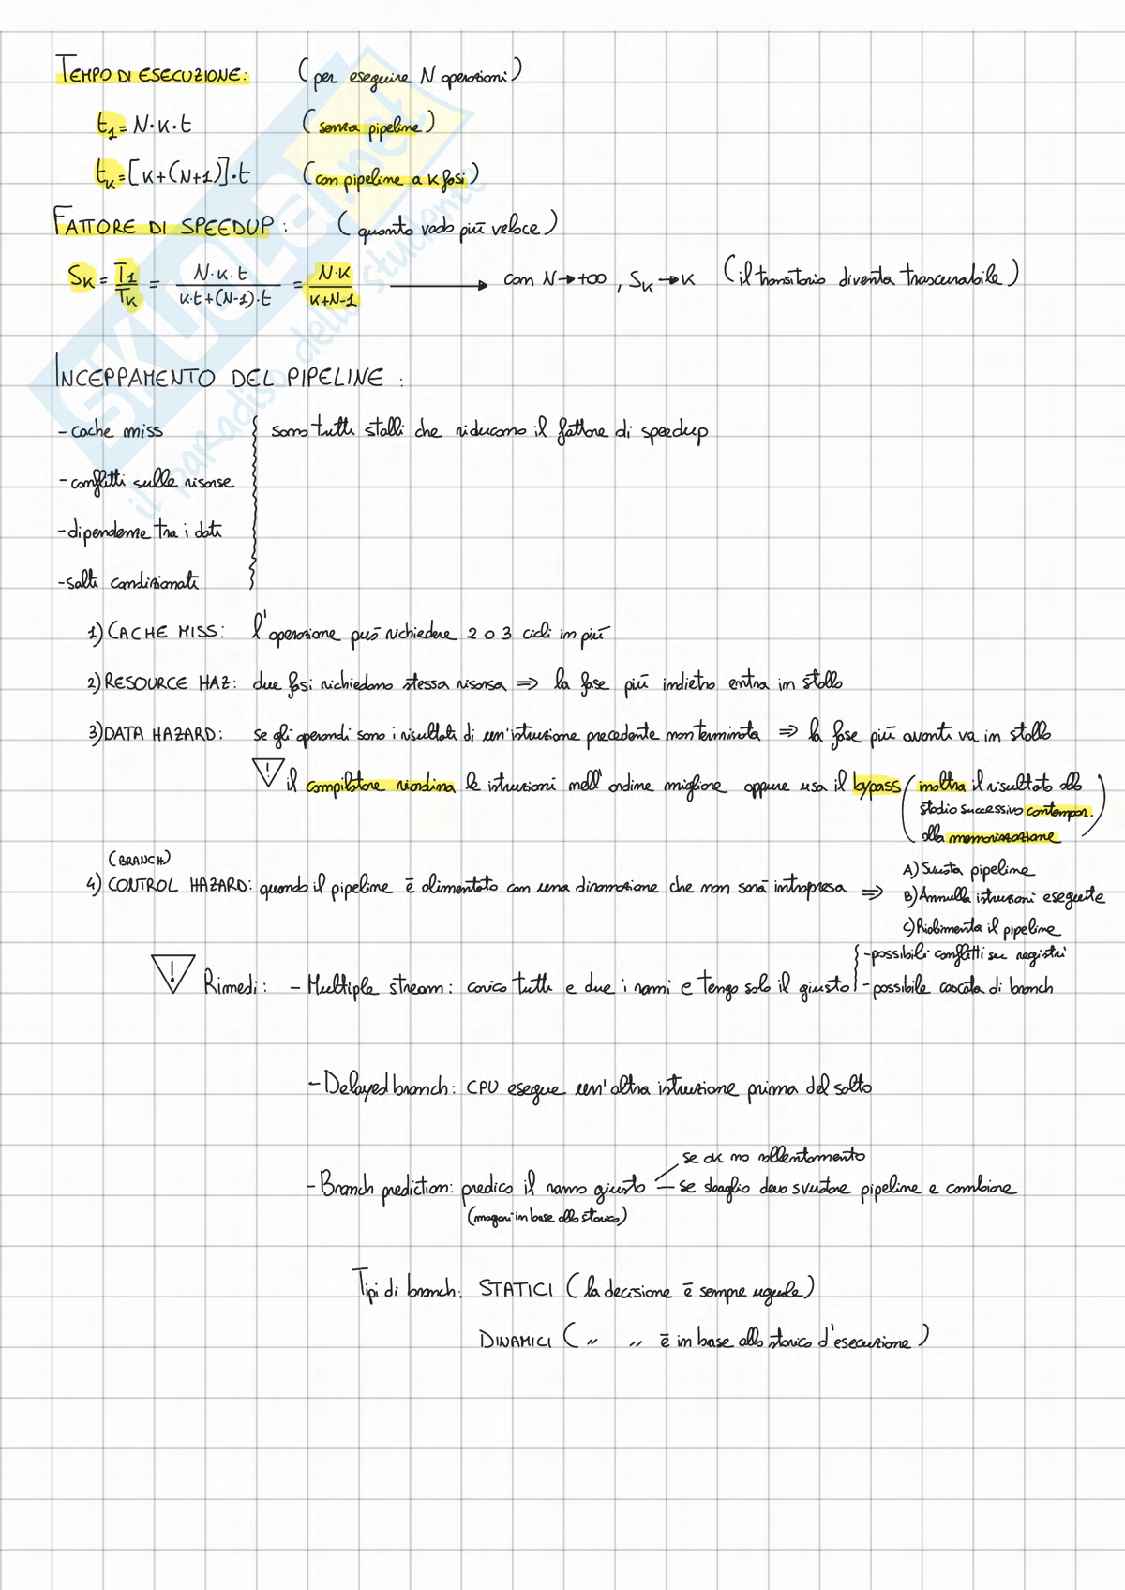 TEMPO DI ESECUZIONE: (per eseguire N operazioni)
t1 = N·K·t (senza pipeline)
tK = [K+(N+1)]·t (con pipeline a K fasi)
FATTORE DI SPEEDUP: (quanto vado più veloce)
SK = T1/TK = N·K·t / K·t+(N-1)·t = N·K / K+N-1 → con N→+∞, SK→K (il transitorio diventa trascurabile)
INCEPPAMENTO DEL PIPELINE:
-cache miss { sono tutti stalli che riducono il fattore di speedup
-conflitti sulle risorse
-dipendenze tra i dati
-salti condizionati
1) CACHE MISS: l'operazione può richiedere 2 o 3 cicli in più
2) RESOURCE HAZ: due fasi richiedono stessa risorsa ⇒ la fase più indietro entra in stallo
3) DATA HAZARD: se gli operandi sono i risultati di un'istruzione precedente non terminata ⇒ la fase più avanti va in stallo
! il compilatore riordina le istruzioni nell'ordine migliore oppure usa il bypass (inoltra il risultato allo
stadio successivo contempor.
alla memorizzazione)
(BRANCH)
4) CONTROL HAZARD: quando il pipeline è alimentato con una diramazione che non sarà intrapresa ⇒
A) Svuota pipeline
B) Annulla istruzioni eseguite
C) Rialimenta il pipeline
! Rimedi: - Multiple stream: carico tutti e due i rami e tengo solo il giusto {
-possibili conflitti su registri
-possibile cascata di branch
- Delayed branch: CPU esegue un'altra istruzione prima del salto
- Branch prediction: predico il ramo giusto
se ok no rallentamento
— se sbaglio devo svuotare pipeline e cambiare
(magari in base allo storico)
Tipi di branch: STATICI (la decisione è sempre uguale)
DINAMICI (" " è in base allo storico d'esecuzione)
SKUOLA.net
il paradiso dello studente